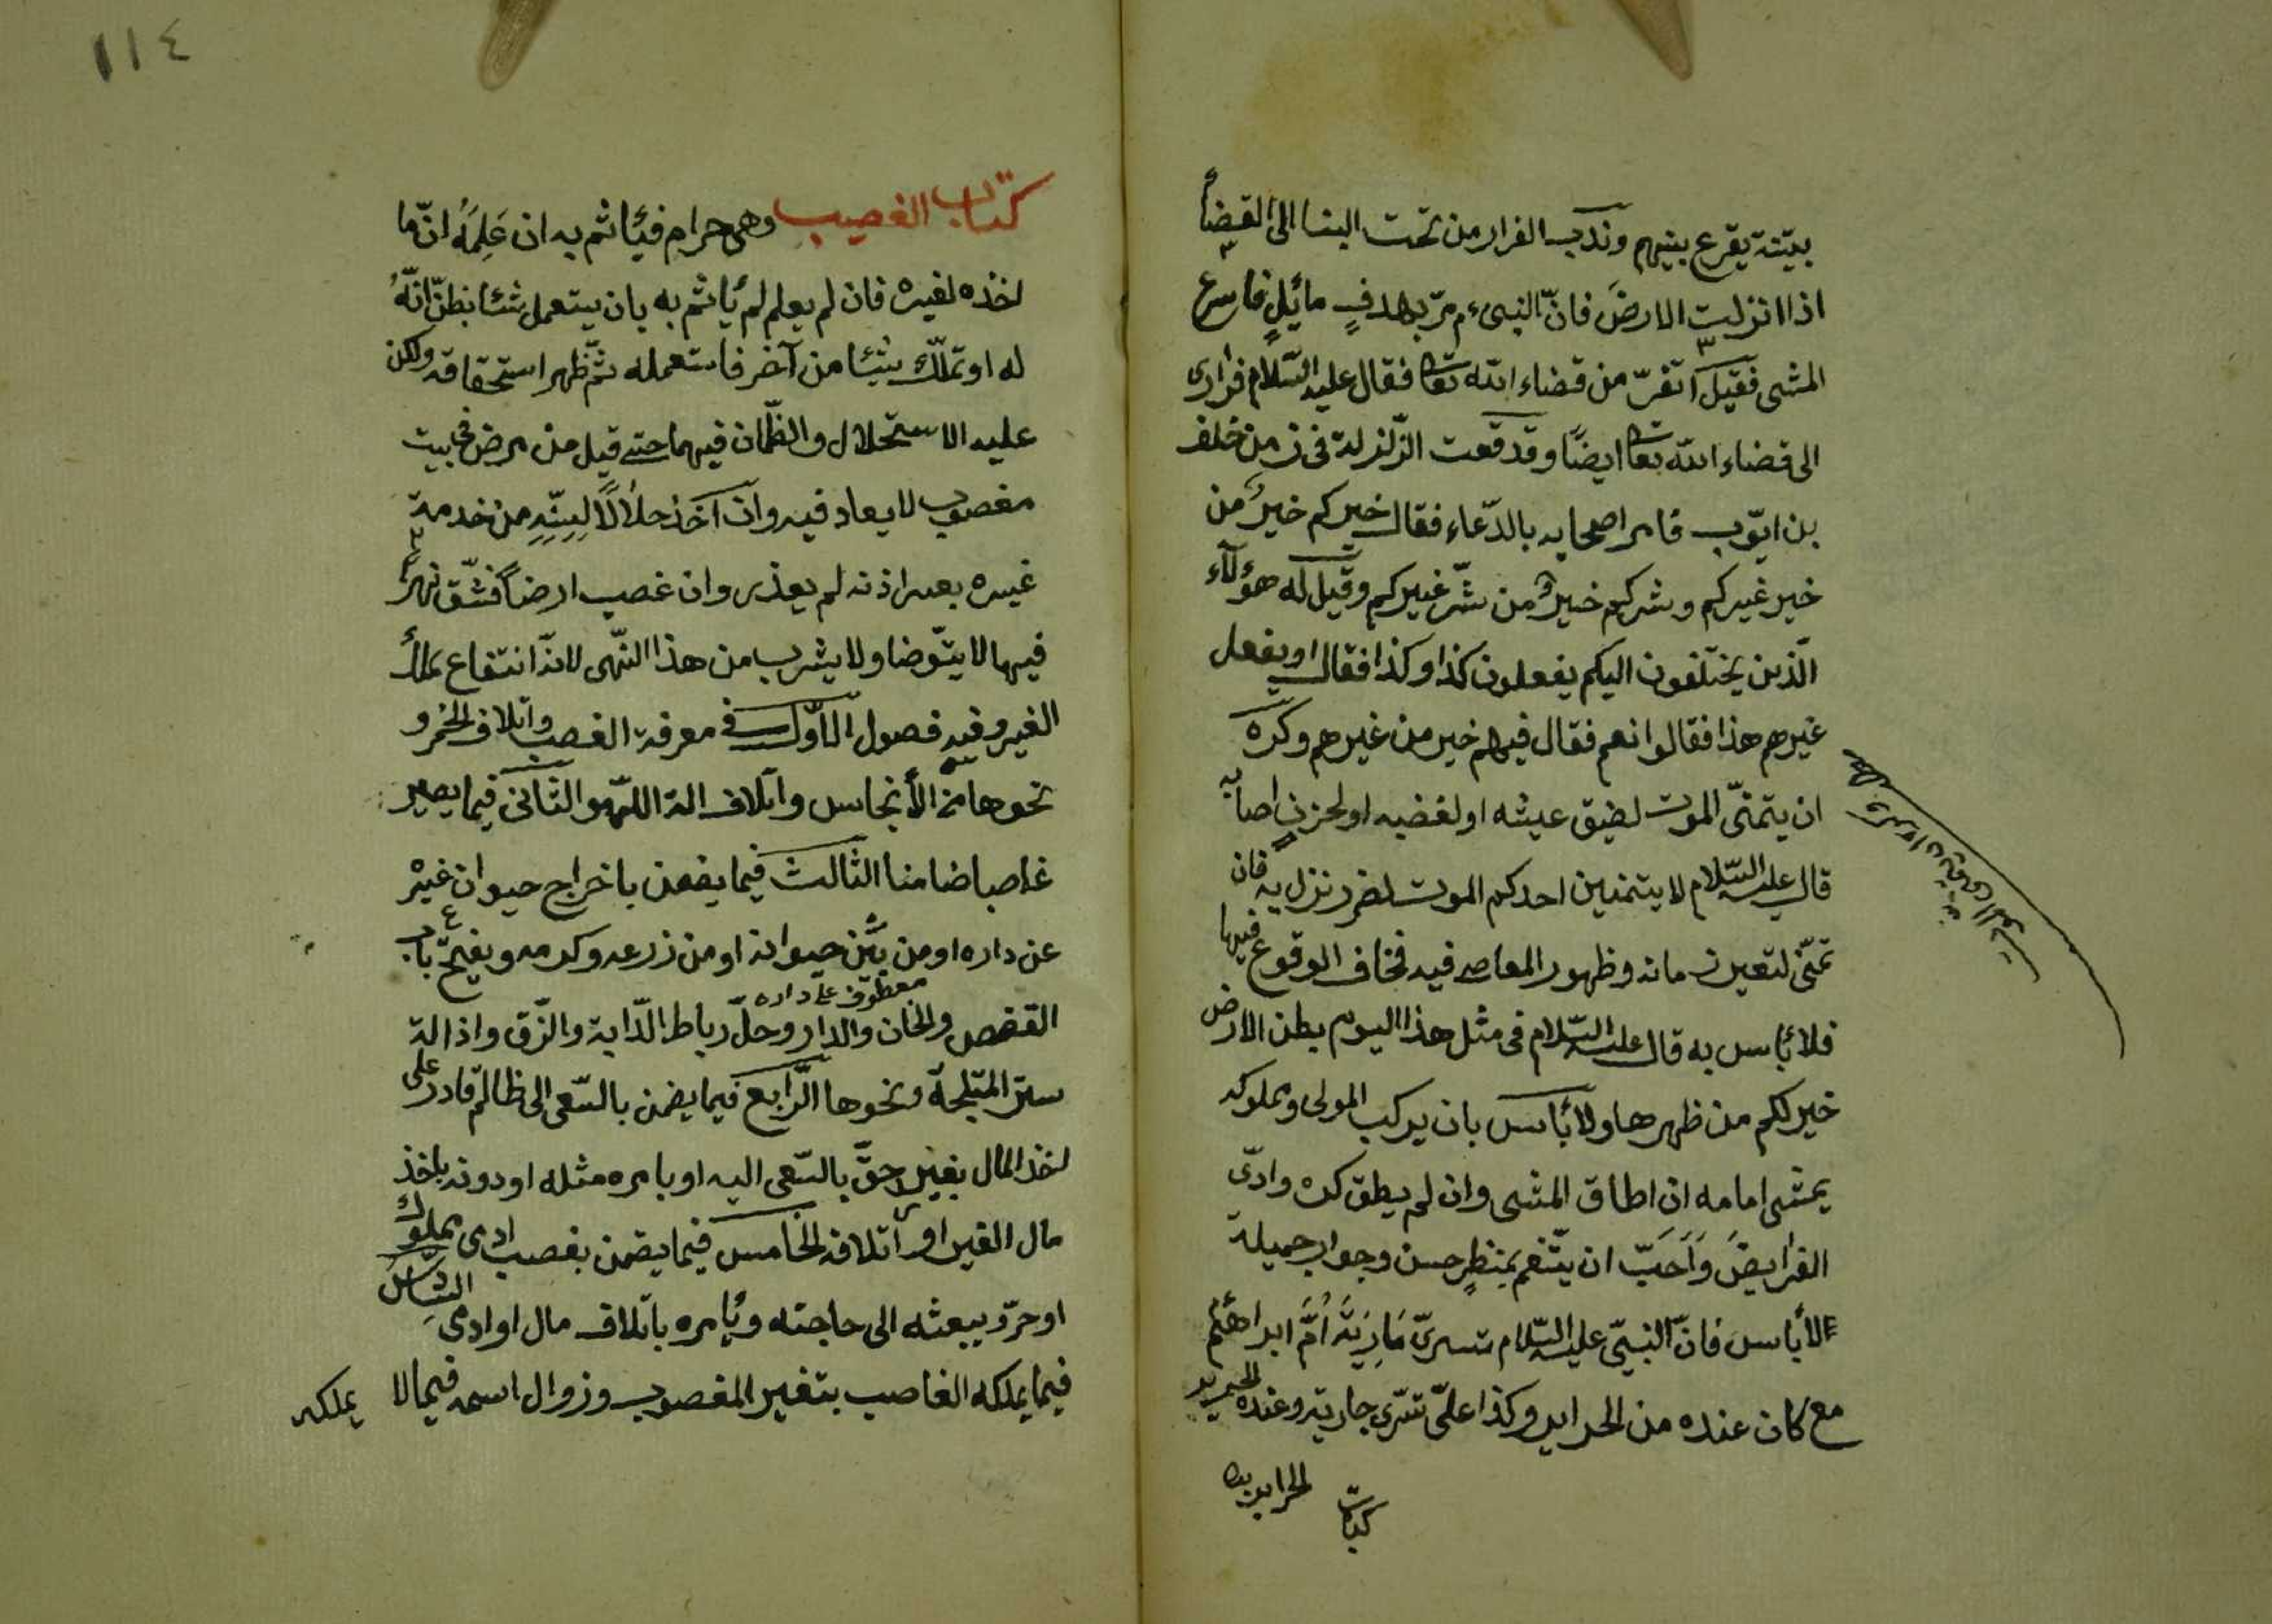 بيّنة يقرع بينهم وندب الفرار من تحت البنا الى الفضأ
اذا انزلت الارض فانّ النبىء م مرّ بهدفٍ مائلٍ فاسرع
المشى فقيل اتفرّ من قضاء الله تعا فقال عليه السّلام فرارى
الى قضاء الله تعا ايضًا وقد قعت الزّلزلة فى زمن خلف
بن ايّوب فامر اصحابه بالدّعاء فقال خيركم خيرٌ من
خير غيركم وشركم خيرٌ من شرّ غيركم وقيل له هؤلآء
الّذين يختلفون اليكم يفعلون كذا وكذا فقال او يفعل
غيرهم هذا فقالوا نعم فقال فيهم خير من غيرهم وكره
ان يتمنّى الموت لضيق عيشه او لغضبه او لحزن اصابه
قال عليه السّلام لا يتمنين احدكم الموت لضر نزل به فان
تمنّى لتعير زمانه وظهور المعاصى فيه فخاف الوقوع فيها
فلا بأس به قال عليه السّلام فى مثل هذا اليوم بطن الارض
خير لكم من ظهرها ولا بأس بان يركب المولى ومملوكه
يمشى امامه ان اطاق المشى وان لم يطق كره وادّى
الفرايض وَاَحَبّ ان يتنعم بمنظرٍ حسن وجوار جميلة
لا بأس فانّ النبىّ عليه السّلام تسرىّ مَارِيَةَ اُمَّ ابراهيم
مع كان عنده من الحراير وكذا علىّ تسّرى جارية وعنده
الحراير
كتاب
كتاب الغصب وهى حرام فيأثم به ان عَلِمَهُ انّ ما
اخذه لغيره فان لم يعلم لم يأثم به بان يستعمل شئا بظنّ انّهُ
له او تملّك شيئا من آخر فاستعمله ثمّ ظهر استحقاقه ولكن
عليه الاستحلال والضّمان فيهما حتى قيل من مرض فى بيت
مغصوب لا يعاد فيه وان آخذ حلالًا لبيّنة من خدمة
غيره بغير اذنه لم يعذر وان غصب ارضاً فشّق نهر
فيها لا يتّوضا ولا يشرب من هذا النّهر لانّه انتفاع بملك
الغير وفيه فصول الاوّل فى معرفة الغصب واتلاف الخمر و
نحوها من الأنجاس واتلاف الة اللّهو الثّانى فيما يصير
غاصبا ضامنا الثالث فيما يضمن باخراج حيوان غيره
عن داره او من بئن حيوانه او من زرعه وكرمه وبفتح باب
معطوف على داره
القفص والخان والدار وحلّ رباط الدّابة والزّق واذالة
ستر المثلجة ونحوها الرّابع فيما يضمن بالسّعى الى ظالم قادر على
اخذ المال بغير حقّ بالسّعى اليه او بامره مثله او دونه باخذ
مال الغير او اتلافه الخامس فيما يضمن بغصب ادمى مملوك
او حرّ ويبعثه الى حاجته ويأمره باتلاف مال او ادمى السّادس
فيما يملكه الغاصب بتغير المغصوب وزوال اسمه فيما لا
يملكه
١١٤